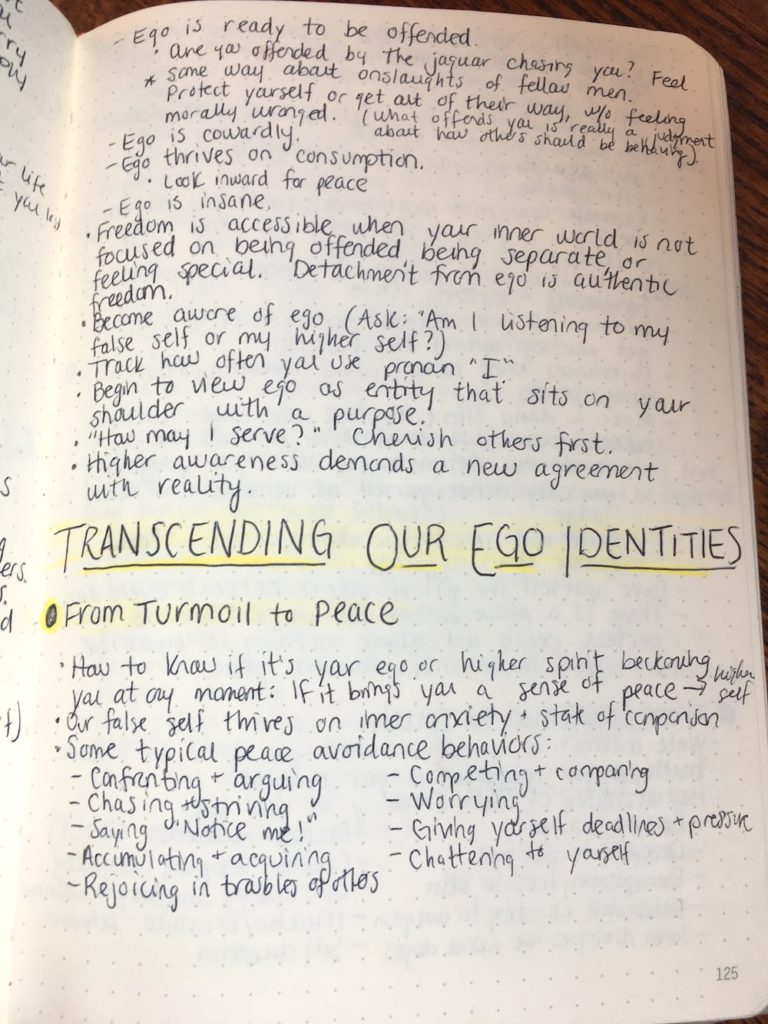 - Ego is ready to be offended.
• Are you offended by the jaguar chasing you? Feel
* same way about onslaughts of fellow men.
Protect yourself or get out of their way, w/o feeling
morally wronged. (What offends you is really a judgment
about how others should be behaving).
- Ego is cowardly.
- Ego thrives on consumption.
• Look inward for peace
- Ego is insane.
• Freedom is accessible when your inner world is not
focused on being offended, being separate, or
feeling special. Detachment from ego is authentic
freedom.
• Become aware of ego (Ask: "Am I listening to my
false self or my higher self?)
• Track how often you use pronoun "I"
• Begin to view ego as entity that sits on your
shoulder with a purpose.
• "How may I serve?" Cherish others first.
• Higher awareness demands a new agreement
with reality.
TRANSCENDING OUR EGO IDENTITIES
From Turmoil to Peace
• How to know if it's your ego or higher spirit beckoning
you at any moment: If it brings you a sense of peace → higher self
• Our false self thrives on inner anxiety + state of comparison
• Some typical peace avoidance behaviors:
- Confronting + arguing
- Chasing + striving
- Saying "Notice me!"
- Accumulating + acquiring
- Rejoicing in troubles of others
- Competing + comparing
- Worrying
- Giving yourself deadlines + pressure
- Chattering to yourself
125